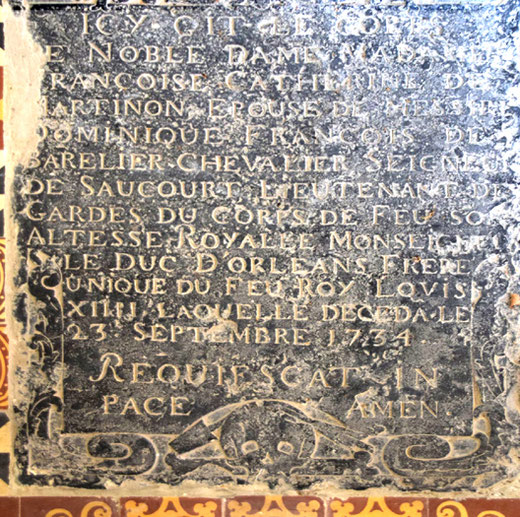 ICY GIT LE CORPS
DE NOBLE DAME MADAME
FRANÇOISE CATHERINE DE
MARTINON EPOUSE DE MESSIRE
DOMINIQUE FRANÇOIS DE
BARELIER CHEVALIER SEIGNEU
DE SAUCOURT LIEUTENANT DE
GARDES DU CORPS DE FEU SO
ALTESSE ROYALLE MONSEIGNE
LE DUC D'ORLEANS FRERE
UNIQUE DU FEU ROY LOVIS
XIIII LAQUELLE DECEDA LE
23 SEPTEMBRE 1734
REQUIESCAT IN
PACE AMEN.